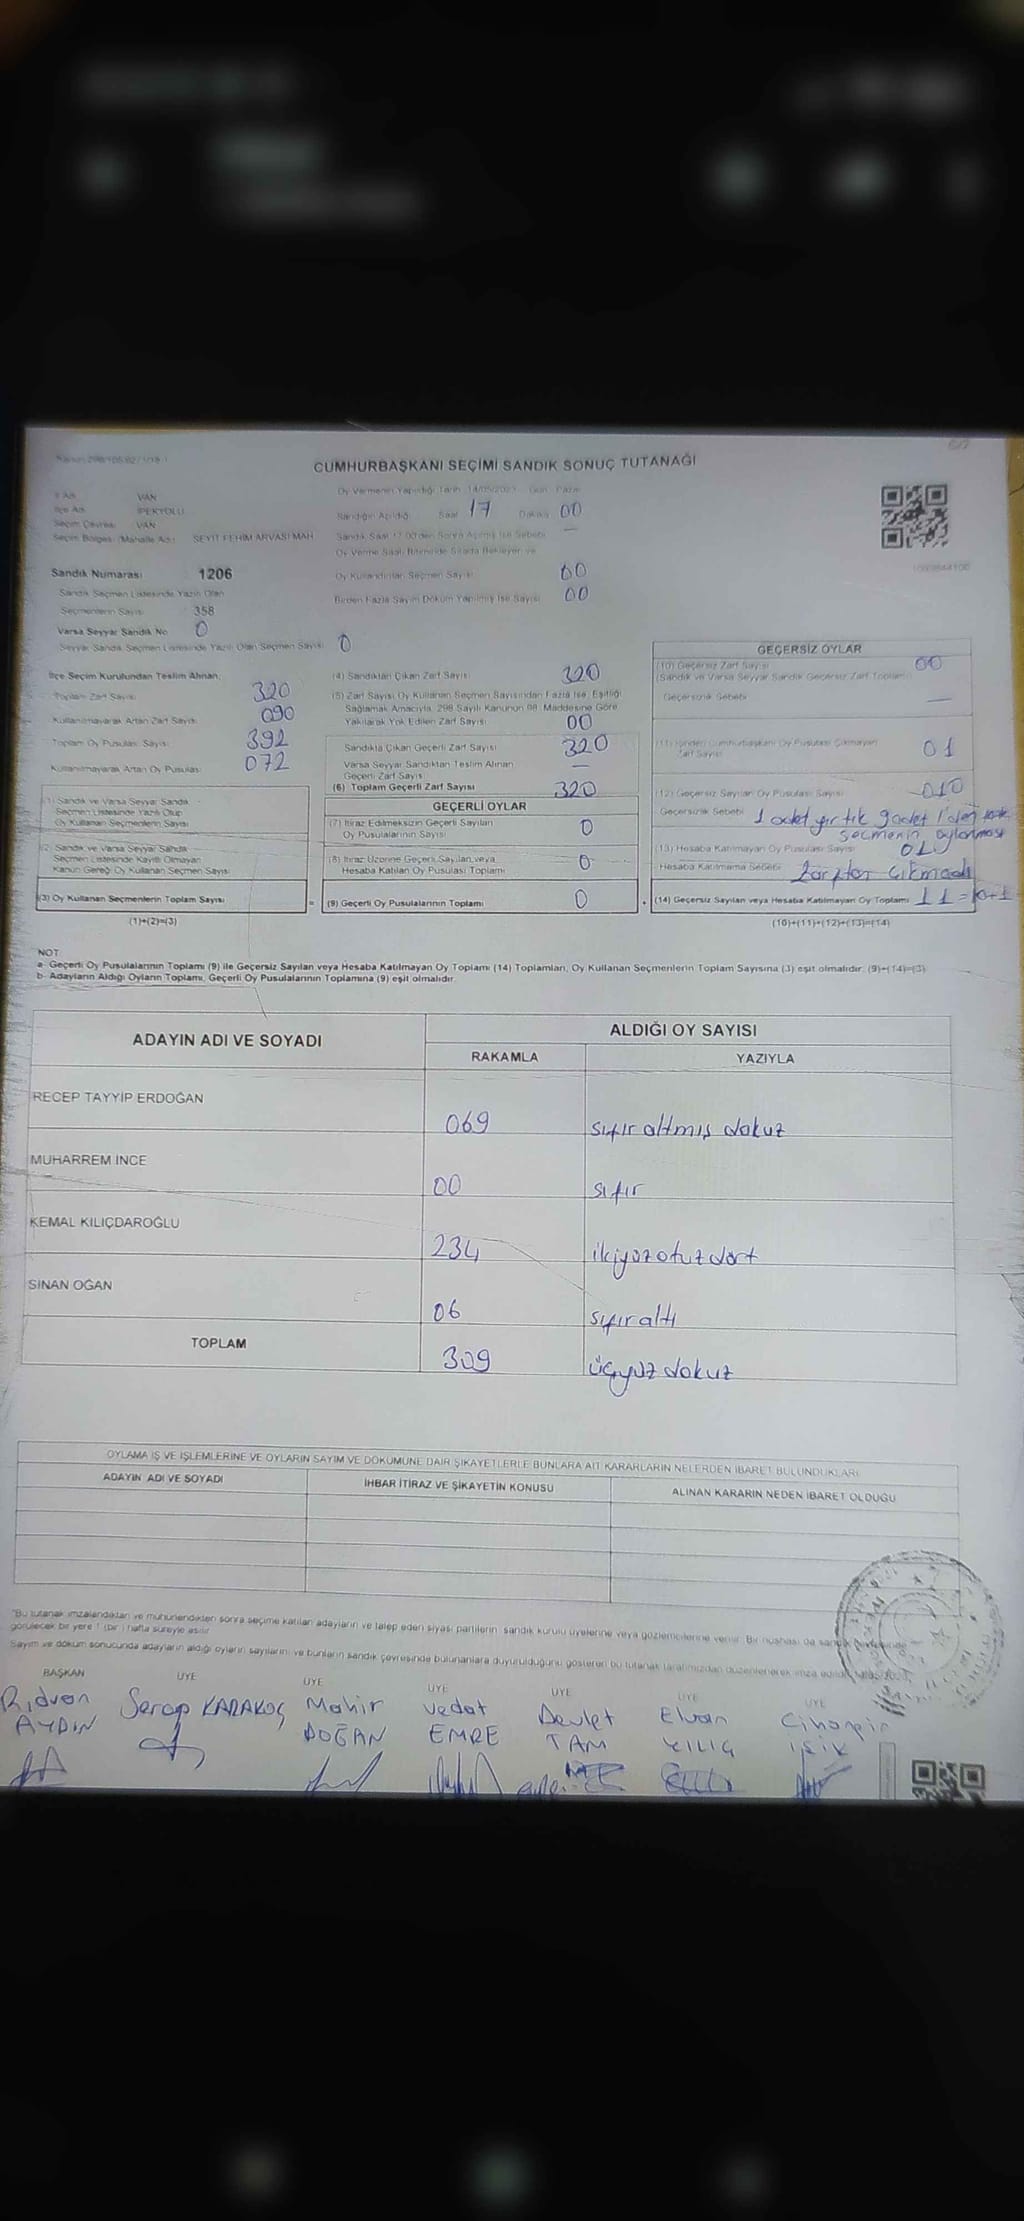 CUMHURBAŞKANI SEÇİMİ SANDIK SONUÇ TUTANAĞI
Oy Vermenin Yapıldığı Tarih 14/05/2023 Gün Pazar
İl Adı VAN
İlçe Adı İPEKYOLU
Seçim Çevresi VAN
Seçim Bölgesi (Mahalle Adı) SEYİT FEHİM ARVASİ MAH
Sandığın Açıldığı Saat 17 Dakika 00
Sandık Saat 17.00'den Sonra Açılmış İse Sebebi —
Oy Verme Saati Bitiminde Sırada Bekleyen ve
Oy Kullandırılan Seçmen Sayısı 00
Birden Fazla Sayım Döküm Yapılmış İse Sayısı 00
Sandık Numarası 1206
Sandık Seçmen Listesinde Yazılı Olan
Seçmenlerin Sayısı 358
Varsa Seyyar Sandık No 0
Seyyar Sandık Seçmen Listesinde Yazılı Olan Seçmen Sayısı 0
İlçe Seçim Kurulundan Teslim Alınan
Toplam Zarf Sayısı 320
Kullanılmayarak Artan Zarf Sayısı 090
Toplam Oy Pusulası Sayısı 392
Kullanılmayarak Artan Oy Pusulası 072
(1) Sandık ve Varsa Seyyar Sandık
Seçmen Listesinde Yazılı Olup
Oy Kullanan Seçmenlerin Sayısı
(2) Sandık ve Varsa Seyyar Sandık
Seçmen Listesinde Kayıtlı Olmayan
Kanun Gereği Oy Kullanan Seçmen Sayısı
(3) Oy Kullanan Seçmenlerin Toplam Sayısı =
(1)+(2)=(3)
(4) Sandıktan Çıkan Zarf Sayısı 320
(5) Zarf Sayısı Oy Kullanan Seçmen Sayısından Fazla İse, Eşitliği
Sağlamak Amacıyla, 298 Sayılı Kanunun 98. Maddesine Göre
Yakılarak Yok Edilen Zarf Sayısı 00
Sandıkta Çıkan Geçerli Zarf Sayısı 320
Varsa Seyyar Sandıktan Teslim Alınan
Geçerli Zarf Sayısı —
(6) Toplam Geçerli Zarf Sayısı 320
GEÇERLİ OYLAR
(7) İtiraz Edilmeksizin Geçerli Sayılan
Oy Pusulalarının Sayısı 0
(8) İtiraz Üzerine Geçerli Sayılan veya
Hesaba Katılan Oy Pusulası Toplamı 0
(9) Geçerli Oy Pusulalarının Toplamı 0 +
GEÇERSİZ OYLAR
(10) Geçersiz Zarf Sayısı 00
(Sandık ve Varsa Seyyar Sandık Geçersiz Zarf Toplamı)
Geçersizlik Sebebi —
(11) İçinden Cumhurbaşkanı Oy Pusulası Çıkmayan
Zarf Sayısı 01
(12) Geçersiz Sayılan Oy Pusulası Sayısı 010
Geçersizlik Sebebi 1 adet yırtık 9 adet 1'den
seçmenin oylanması
(13) Hesaba Katılmayan Oy Pusulası Sayısı 01
Hesaba Katılmama Sebebi Zarftan Çıkmadı
(14) Geçersiz Sayılan veya Hesaba Katılmayan Oy Toplamı 11=10+1
(10)+(11)+(12)+(13)=(14)
NOT
a- Geçerli Oy Pusulalarının Toplamı (9) ile Geçersiz Sayılan veya Hesaba Katılmayan Oy Toplamı (14) Toplamları, Oy Kullanan Seçmenlerin Toplam Sayısına (3) eşit olmalıdır. (9)+(14)=(3)
b- Adayların Aldığı Oyların Toplamı, Geçerli Oy Pusulalarının Toplamına (9) eşit olmalıdır.
ADAYIN ADI VE SOYADI
ALDIĞI OY SAYISI
RAKAMLA YAZIYLA
RECEP TAYYİP ERDOĞAN 069 sıfır altmış dokuz
MUHARREM İNCE 00 sıfır
KEMAL KILIÇDAROĞLU 234 ikiyüzotuzdört
SİNAN OĞAN 06 sıfır altı
TOPLAM 309 üçyüz dokuz
OYLAMA İŞ VE İŞLEMLERİNE VE OYLARIN SAYIM VE DÖKÜMÜNE DAİR ŞİKAYETLERLE BUNLARA AİT KARARLARIN NELERDEN İBARET BULUNDUKLARI
ADAYIN ADI VE SOYADI
İHBAR İTİRAZ VE ŞİKAYETİN KONUSU
ALINAN KARARIN NEDEN İBARET OLDUĞU
*Bu tutanak imzalandıktan ve mühürlendikten sonra seçime katılan adayların ve talep eden siyasi partilerin sandık kurulu üyelerine veya gözlemcilerine verilir. Bir nüshası da sandık çevresinde
görülecek bir yere 1 (bir) hafta süreyle asılır.
Sayım ve döküm sonucunda adayların aldığı oyların sayılarını ve bunların sandık çevresinde bulunanlara duyurulduğunu gösteren bu tutanak tarafımızdan düzenlenerek imza edildi.
BAŞKAN ÜYE ÜYE ÜYE ÜYE ÜYE ÜYE
Rıdvan AYDIN
Serap KARAKOÇ
Mahir DOĞAN
Vedat EMRE
Devlet TAM
Elvan KILIÇ
IŞIK